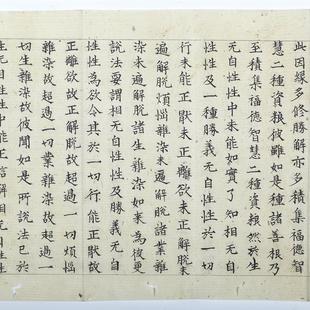 此因緣多修勝解亦多積集福德智
慧二種資糧彼雖如是種諸善根乃
至積集福德智慧二種資糧然於生
无自性性中未能如實了知相无自
性性及二種勝義无自性性於一切
行未能正猒未正離欲未正解脫未
遍解脫煩惱雜染未遍解脫諸業雜
染未遍解脫諸生雜染如來為彼更
說法要謂相无自性性及勝義无自
性性為欲令其於一切行能正猒故
正離欲故正解脫故超過一切煩惱
雜染故超過一切業雜染故超過一
切生雜染故彼聞如是所說法已於
生无自性性中能正信解相无自性